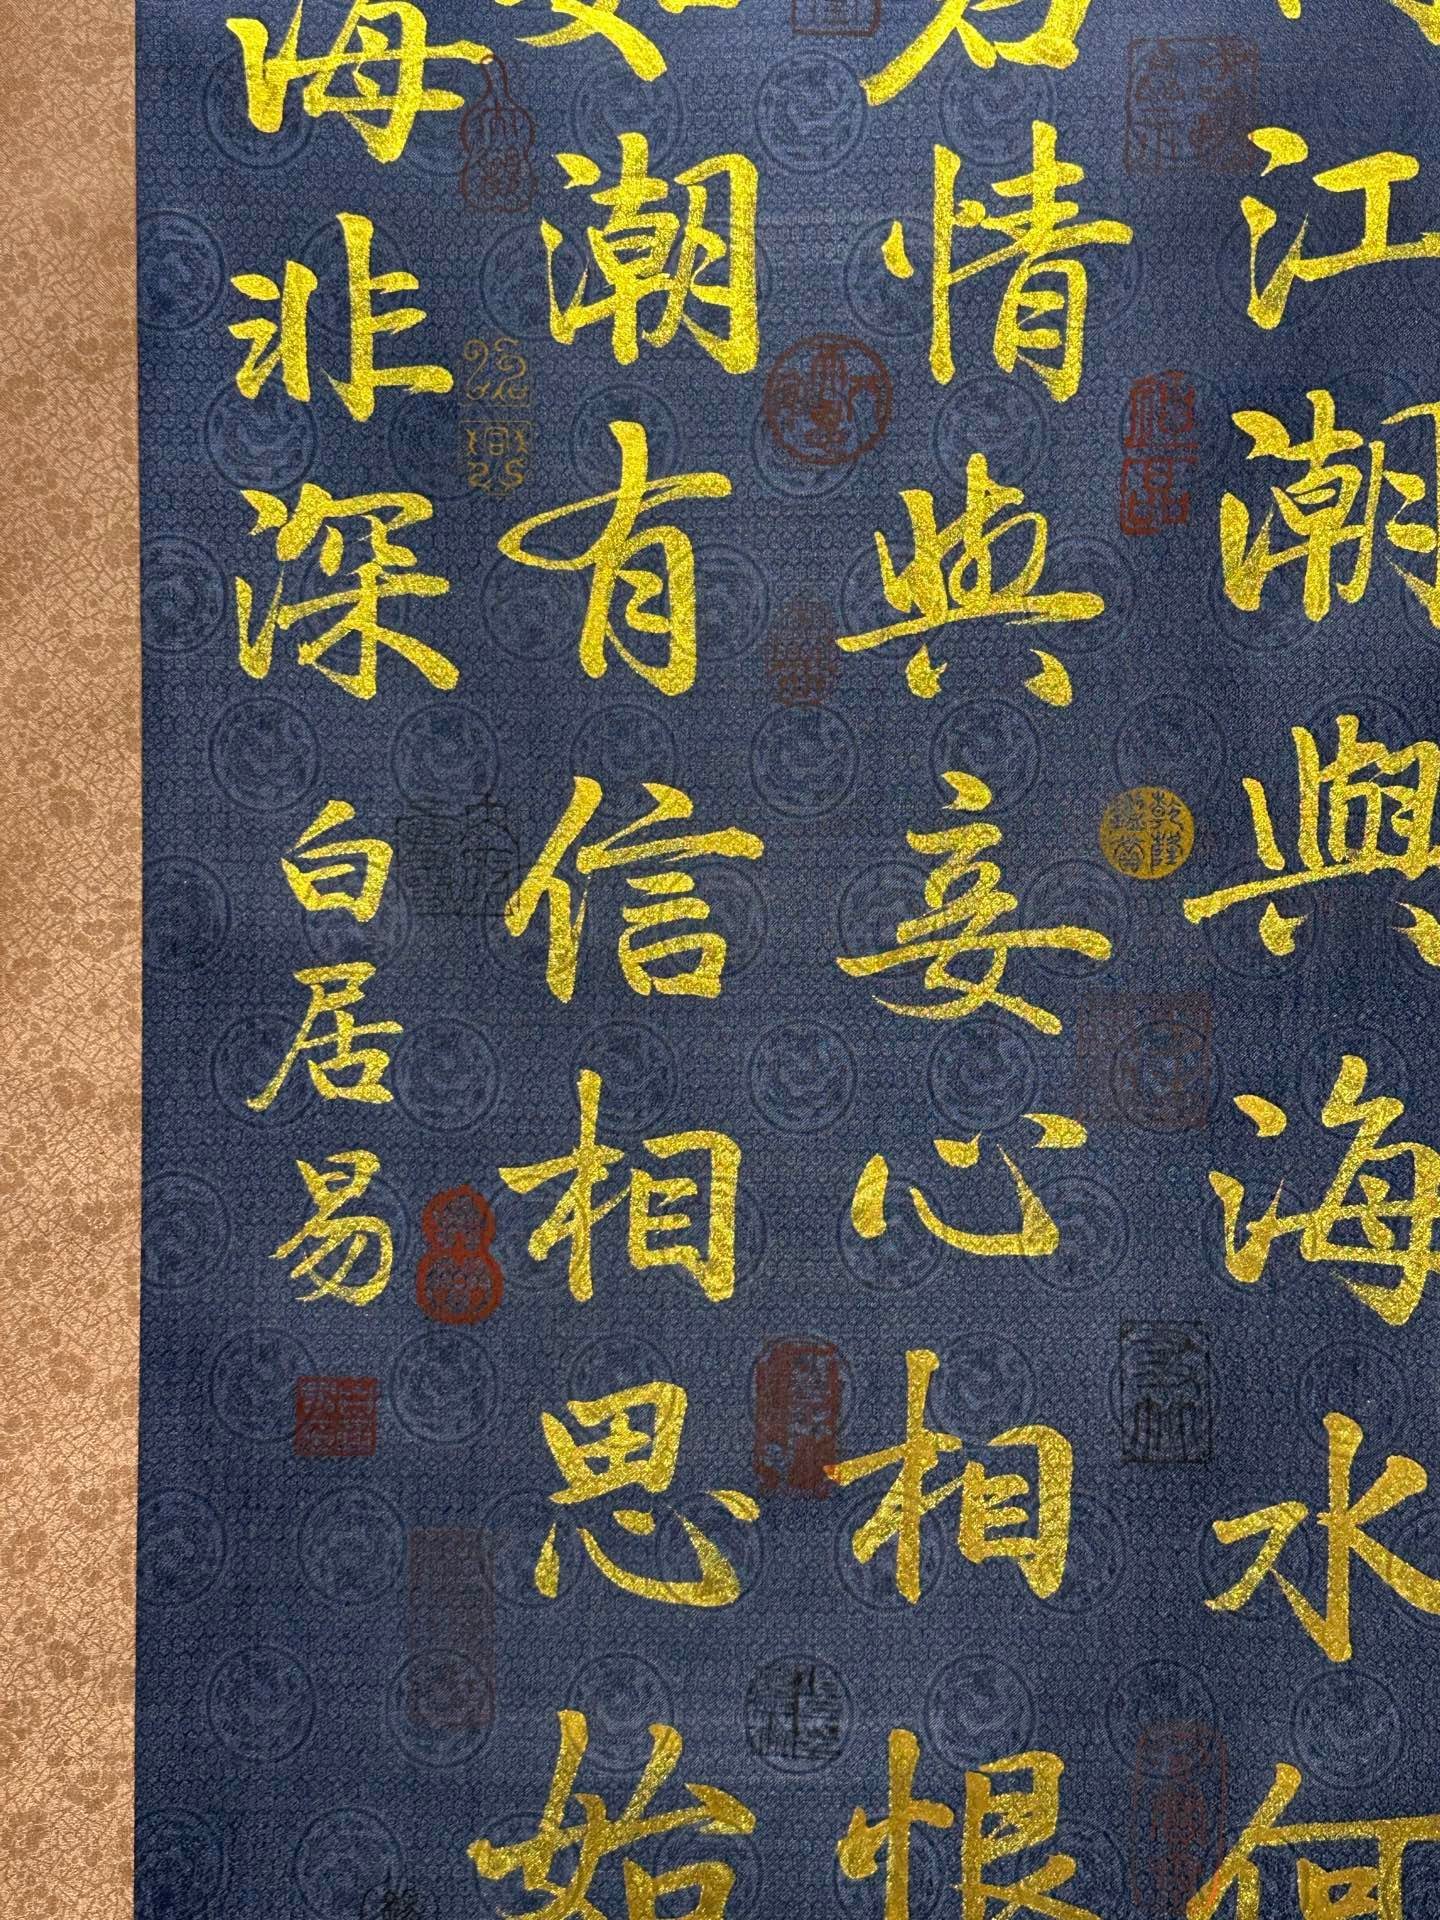 江潮與海水何
君情與妾心相恨
如潮有信相思始
海非深
白居易